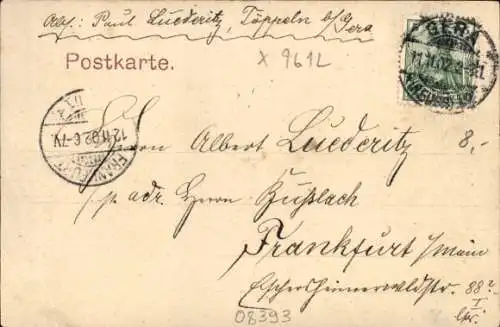 Abs: Paul Luederitz, Töppeln b/Gera
Postkarte.
X 961L
GERA
11.11.02
(REUSS)
12.11.02 6-7N.
FRANKFURT
Herrn Albert Luederitz
8,-
p. adr. Herrn Bußlach
Frankfurt a/Main
Eschersheimerlandstr. 88
I
08393